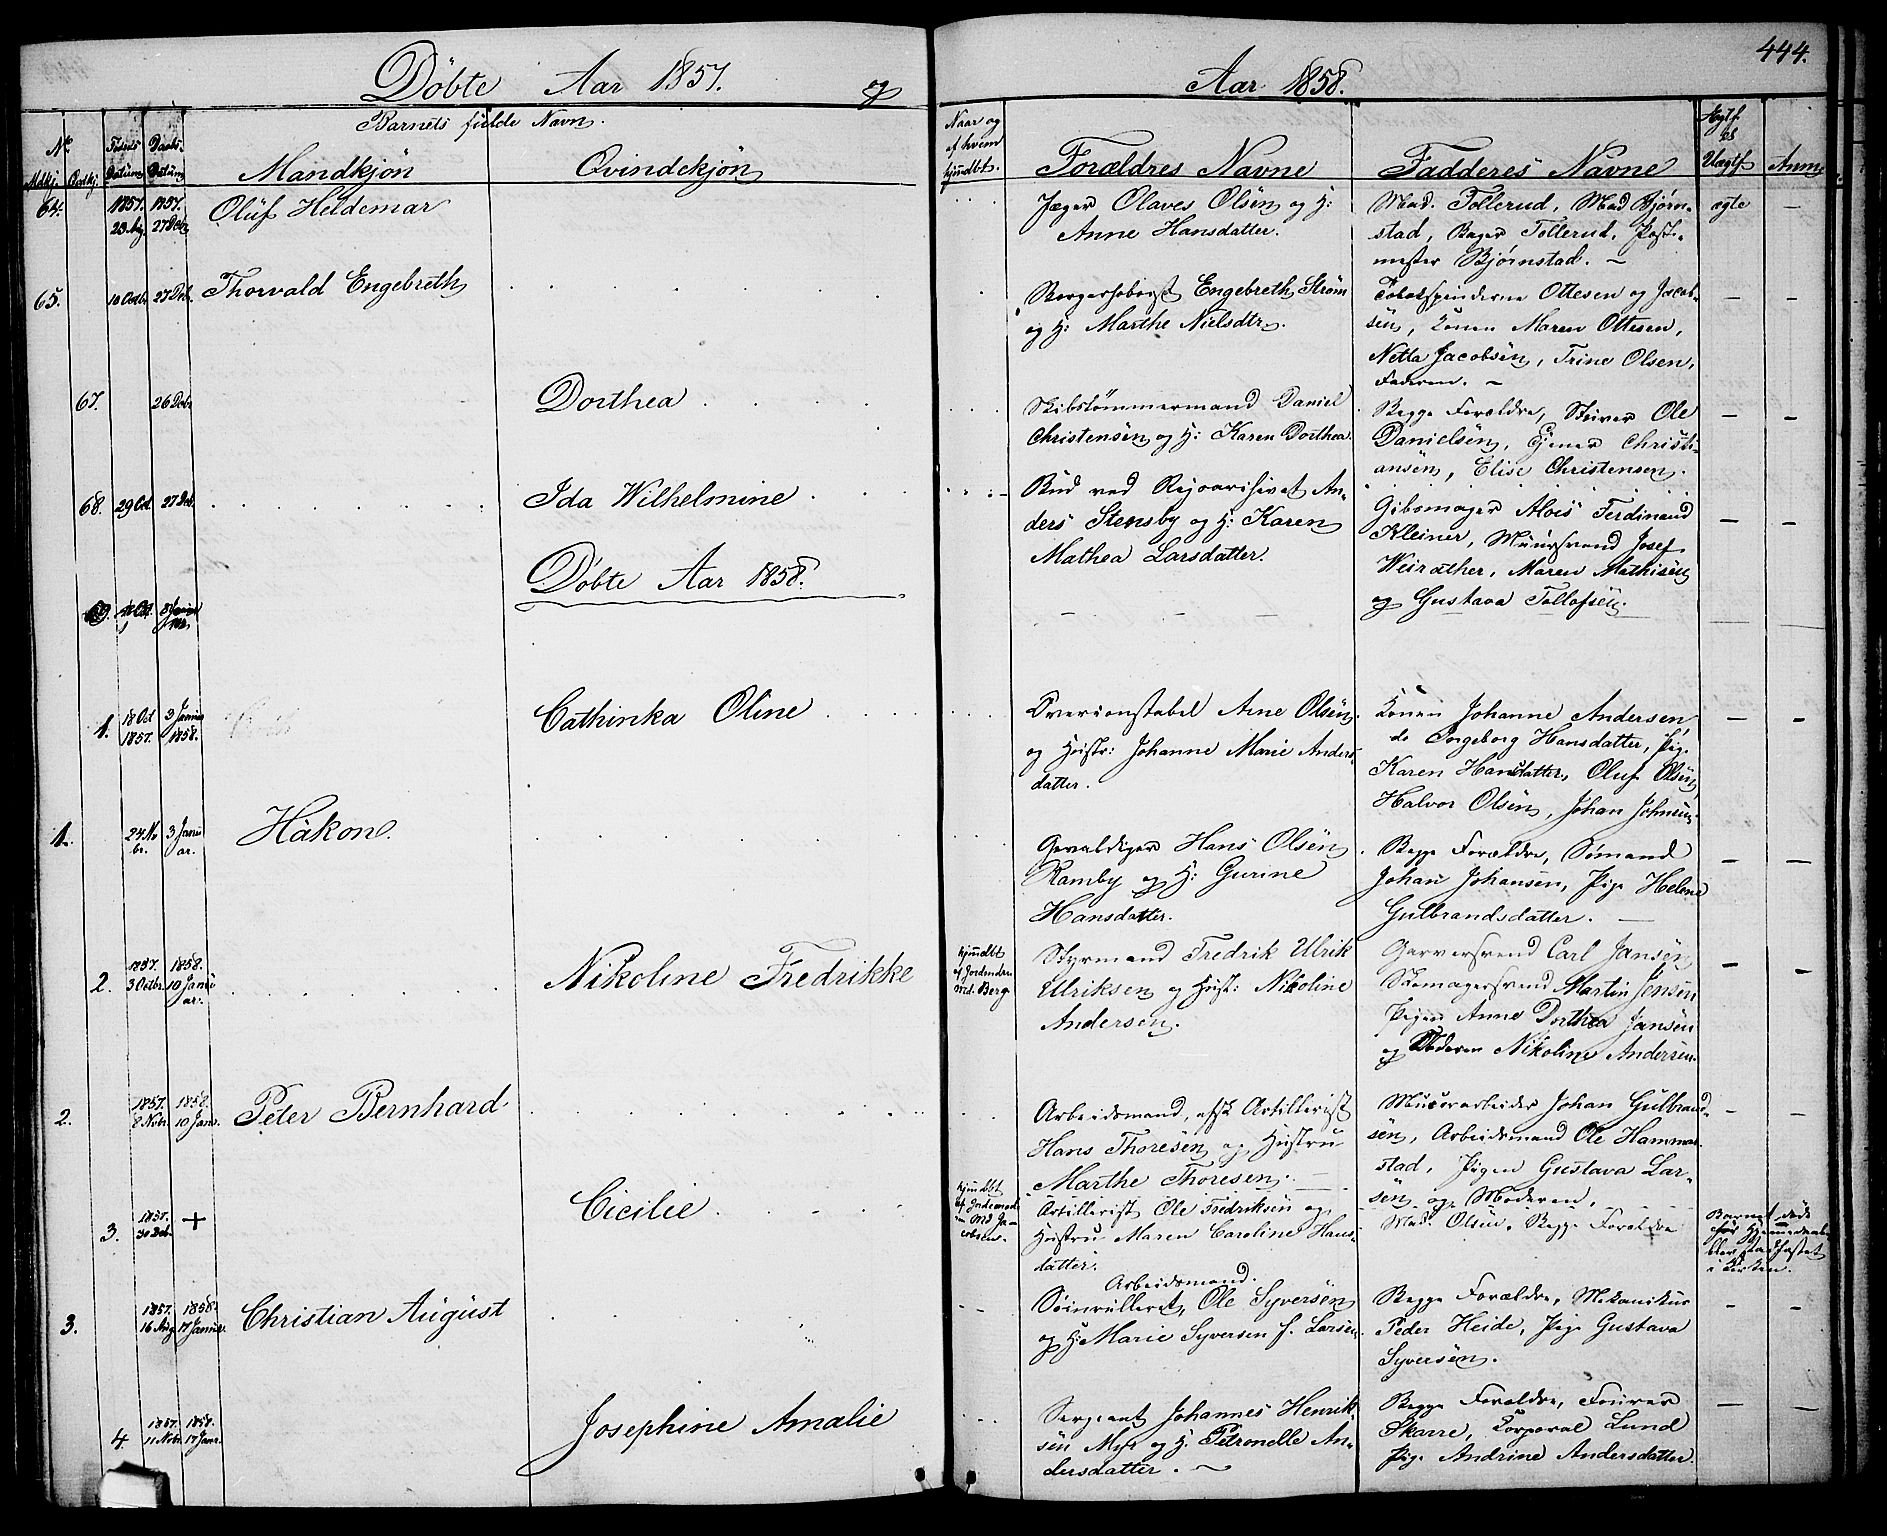 Döbte Aar 1857. &
Aar 1858.
444.
Barnets fulde Navn.
No
Mdkj. Qvdkj.
Fødsels Datum
Daabs- Datum
Mandkjøn
Qvindekjön
Naar og af hvem hjmdbt.
Forældres Navne
Fadderes Navne
Ægtf. el Uægtf
Anm
64. 1857. 23 Ag. 1857. 27 Deb.
Oluf Heldemar
Jæger Olaves Olsen og H:
Anne Hansdatter.
Mad. Tollerud, Mad Bjørn-
stad, Bager Tollerud, Post-
mester Bjørnstad.
ægte
65. 10 Octbr. 27 Deb.
Thorvald Engebreth
Borgerhoboist Engebreth Strøm
og H: Marthe Nielsdtr.
Tobakspinderne Ottesen og Jacob-
sen, Konen Maren Ottesen,
Netta Jacobsen, Trine Olsen,
Faderen.
67. 26 Debr
Dorthea
Skibstömmermand Daniel
Christensen og H: Karen Dorthea.
Begge Forældre, Skriver Ole
Danielsen, Tjener Christi-
ansen, Elise Christensen.
68. 29 Oct. 27 Deb.
Ida Wilhelmine
Bud ved Rigsarchivet An-
ders Stensby og H: Karen
Mathea Larsdatter.
Gibsmager Alois Ferdinand
Kleiner, Muursvend Josef
Weirather, Maren Mathisen
og Gustava Tollofsen.
Döbte Aar 1858.
69. 18 Oct. 3 Januar
1. 18 Oct 1857. 3 Januar 1858.
Cathinka Oline
Overconstabel Arne Olsen
og Hustr: Johanne Marie Anders-
datter.
Konen Johanne Andersen,
do Ingeborg Hansdatter, Pig.
Karen Hansdatter, Oluf Olsen
Halvor Olsen, Johan Johnsen.
1. 24 No br. 3 Janu ar.
Håkon.
Gevaldiger Hans Olsen
Ramby og H: Gurine
Hansdatter.
Begge Forældre, Sömand
Johan Johansen, Pige Helene
Gulbrandsdatter.
2. 1857. 3 Octbr. 1858. 10 Janu ar.
Nikoline Fredrikke
hjmdbt af Jordmdr. Md. Berg
Styrmand Fredrik Ulrik
Ulriksen og Hust: Nikoline
Andersen.
Garversvend Carl Jansen
Skomagersvend Martin Jensen
Pigen Anne Dorthea Jansen
og Moderen Nikoline Andersen.
2. 1857. 8 Nobr. 1858. 10 Janr.
Peter Bernhard
Arbeidsmand, afsk Artillerist
Hans Thoresen og Hustru
Marthe Thoresen.
Muurarbeider Johan Gulbrand-
sen, Arbeidsmand Ole Hammer-
stad, Pigen Gustava Lar-
sen og Moderen.
3. 1857. 30 Deb. +
Cicilie
hjmdbt af Jordemoder Md Ja-
cobsen.
Artillerist Ole Fredriksen og
Hustru Maren Caroline Hans-
datter.
Mad. Olsen, Begge Forældre
Barnet døde
før Hjemmedaaben
blev stadfæstet
i Kirken.
3. 1857. 16 Aug 1858. 17 Januar.
Christian August
Arbeidsmand.
Söinrulleret, Ole Syversen
og H: Marie Syversen f. Larsen.
Begge Forældre, Mekanikus
Peder Heide, Pige Gustava
Syversen.
4. 1857. 11 Nobr. 1858. 17 Janr.
Josephine Amalie
Sergeant Johannes Henrik-
sen Myr og H. Petronelle An-
dersdatter.
Begge Forældre, Fourer
Skarre, Korporal Lund
Pige Andrine Andersdatter.